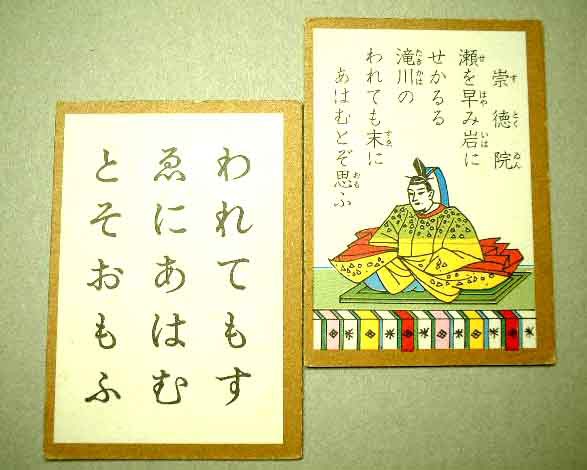 崇徳院
瀬を早み岩に
せかるる
滝川の
われても末に
あはむとぞ思ふ
われてもす
ゑにあはむ
とそおもふ